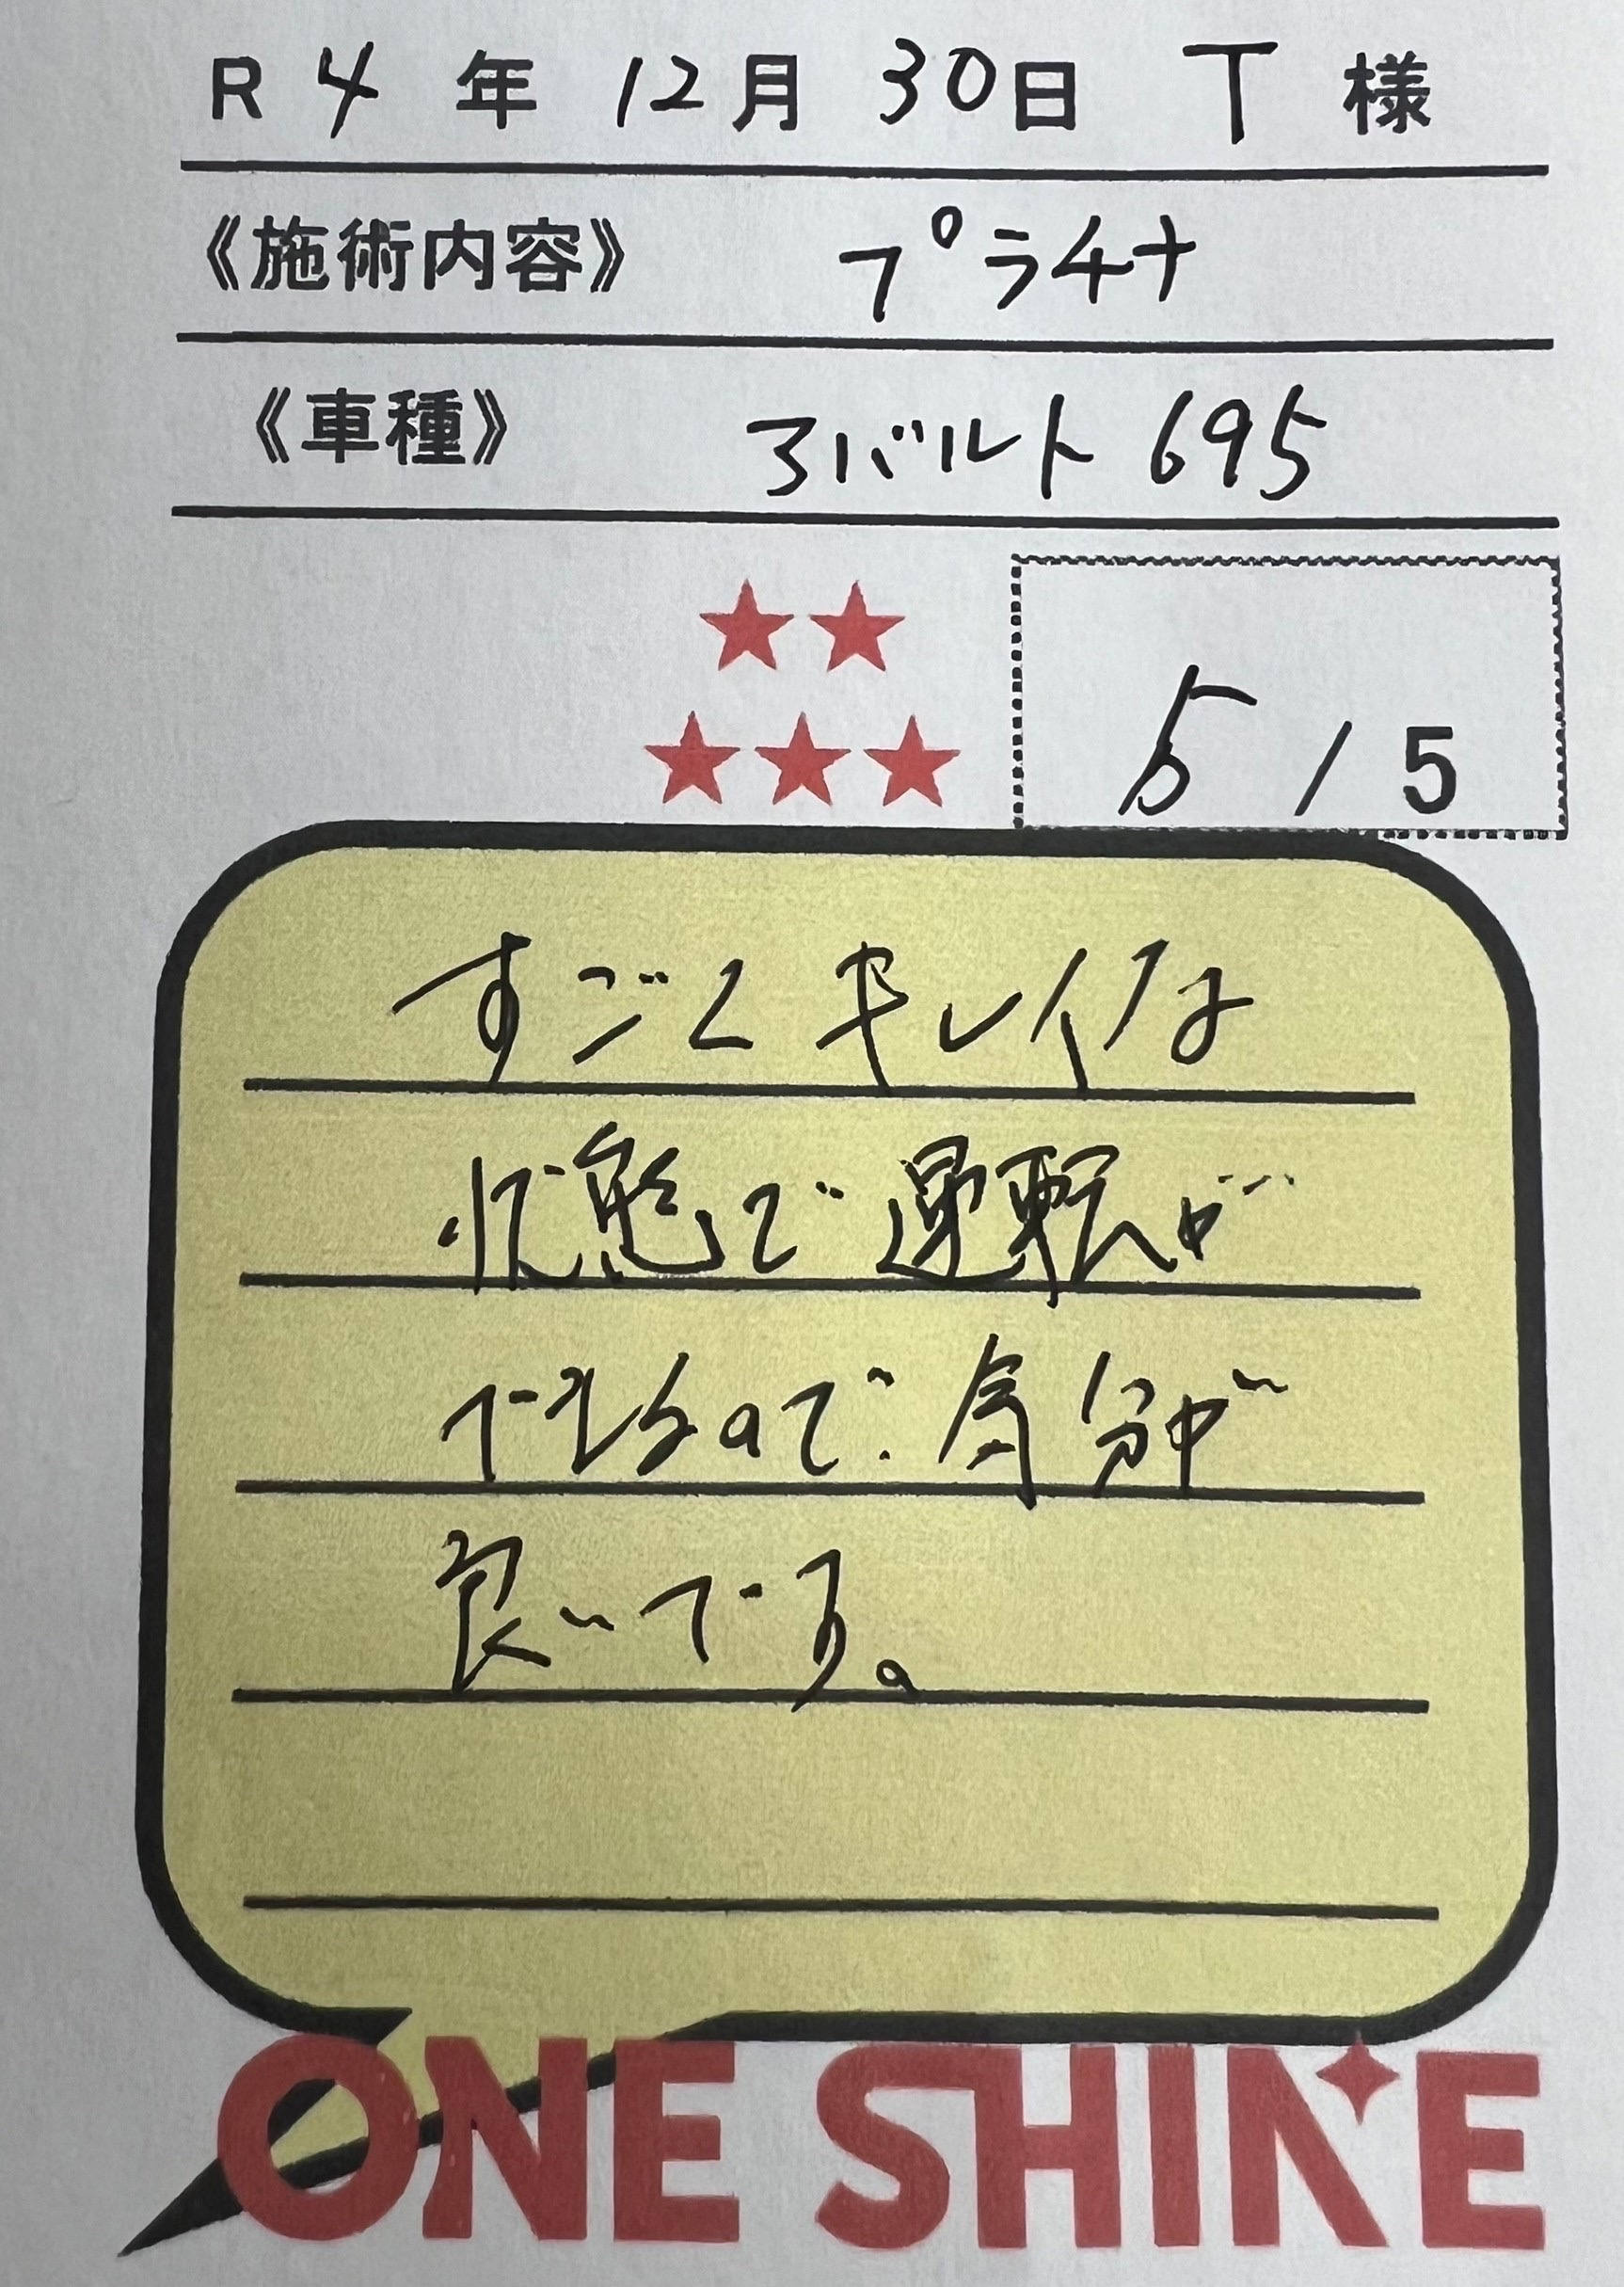 R 4 年 12月 30日 T 様
《施術内容》 プラチナ
《車種》 アバルト 695
★★
★★★
5 / 5
すごくキレイな
状態で運転が
できるので、気分が
良いです。
ONE SHINE